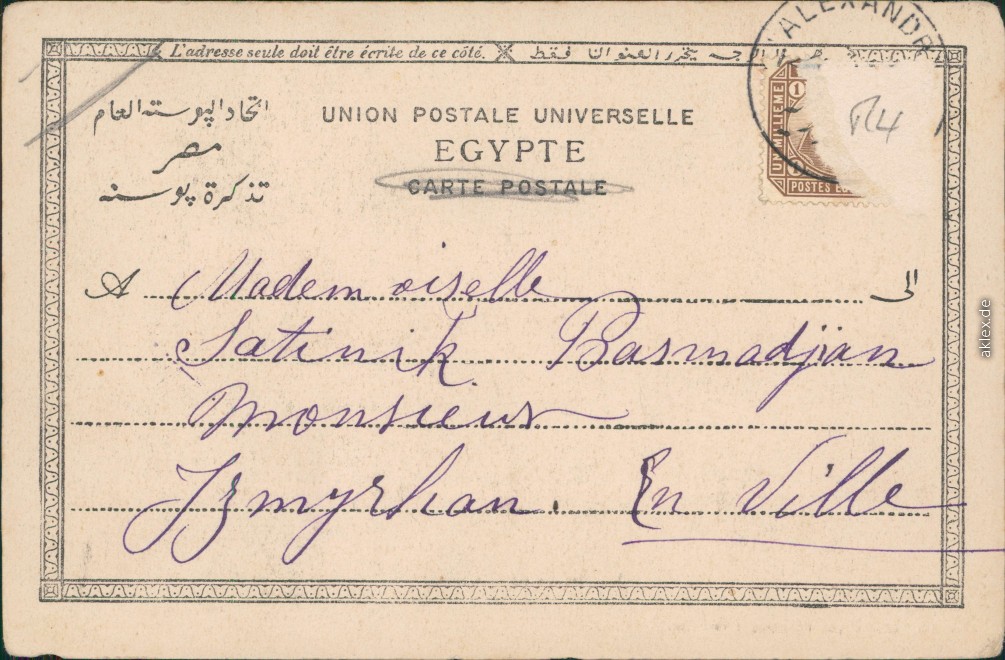 ALEXANDR
L'adresse seule doit être écrite de ce côté. يحرر العنوان فقط
اتحاد البوسته العام
مصر
تذكرة بوسته
UNION POSTALE UNIVERSELLE
EGYPTE
CARTE POSTALE
UN MILLIEME
1
POSTES
R4
A Mademoiselle الى
Satinik Basmadjian
Monsieur
Izmyrlian. En Ville
aklex.de